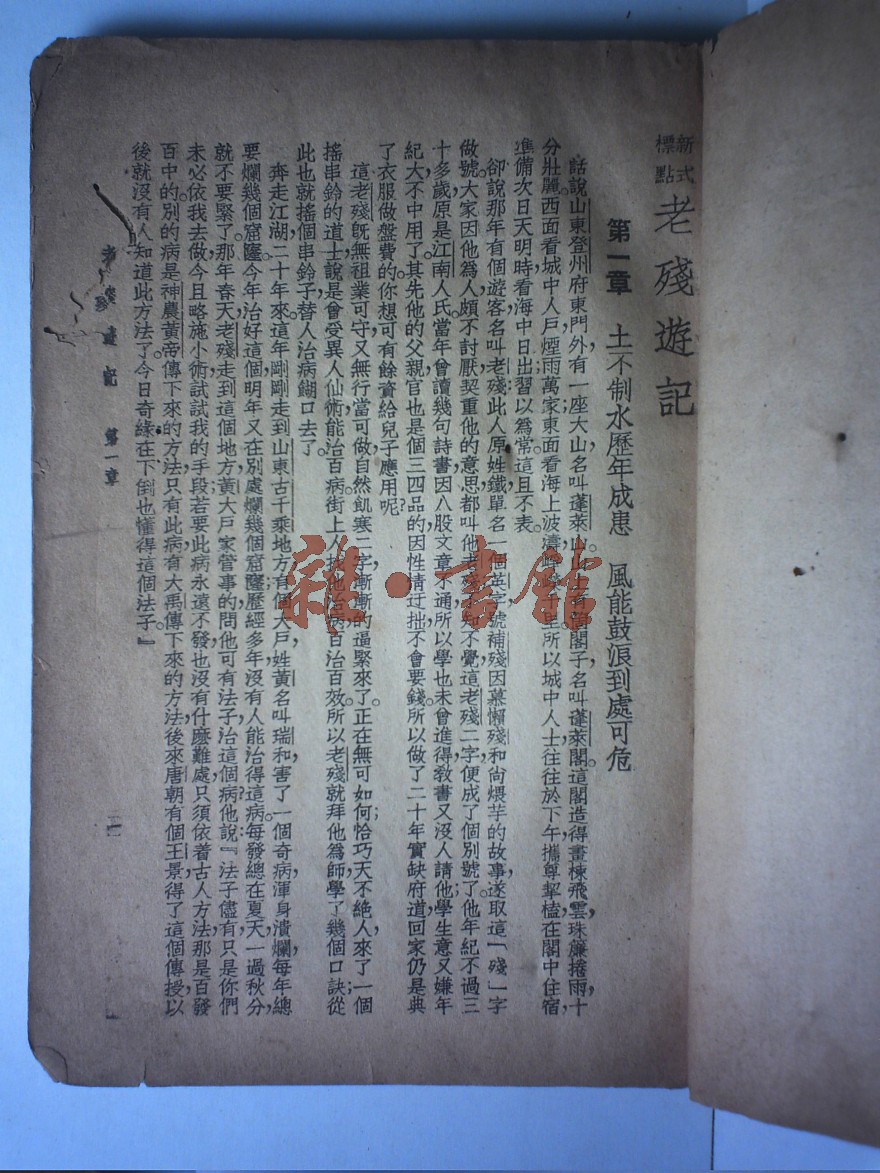 新式
標點
老殘遊記
第一章　土不制水歷年成患　風能鼓浪到處可危
話說山東登州府東門外有一座大山，名叫蓬萊山。山上有個閣子，名叫蓬萊閣。這閣造得畫棟飛雲，珠簾捲雨，十
分壯麗。西面看城中人戶，煙雨萬家；東面看海上波濤，崢嶸千里。所以城中人士往往於下午攜尊挈榼，在閣中住宿，
準備次日天明時看海中日出，習以爲常。這且不表。
卻說那年有個遊客，名叫老殘。此人原姓鐵，單名一個英字，號補殘。因慕懶殘和尙煨芋的故事，遂取這「殘」字
做號。大家因他爲人頗不討厭，契重他的意思，都叫他老殘。不知不覺，這老殘二字便成了個別號了。他年紀不過三
十多歲，原是江南人氏。當年曾讀幾句詩書，因八股文章不通，所以學也未曾進得，敎書又沒人請他；學生意又嫌年
紀大，不中用了。其先他的父親官也是個三四品的，因性情迂拙，不會要錢。所以做了二十年實缺，府道回家，仍是典
了衣服做盤費的。你想可有餘資給兒子應用呢？
這老殘旣無祖業可守，又無行當可做，自然飢寒二字漸漸的逼緊來了。正在無可如何，恰巧天不絕人，來了一個
搖串鈴的道士，說是曾受異人仙術，能治百病，街上人找他治病，百治百效。所以老殘就拜他爲師，學了幾個口訣；從
此也就搖個串鈴子，替人治病餬口去了。
奔走江湖二十年來。這年剛剛走到山東古千乘地方，有個大戶，姓黃，名叫瑞和，害了一個奇病：渾身潰爛，每年總
要爛幾個窟窿。今年治好這個，明年又在別處爛幾個窟窿。歷經多年，沒有人能治得這病。每發總在夏天，一過秋分，
就不要緊了。那年春天，老殘走到這個地方，黃大戶家管事的，問他可有法子治這個病？他說：『法子儘有，只是你們
未必依我去做。今且略施小術，試試我的手段。若要此病永遠不發，也沒有什麽難處，只須依着古人方法，那是百發
百中的。別的病是神農黃帝傳下來的方法，只有此病有大禹傳下來的方法，後來唐朝有個王景得了這個傳授，以
後就沒有人知道此方法了。今日奇緣，在下倒也懂得這個法子。』
老殘遊記　第一章
一
雜·書館